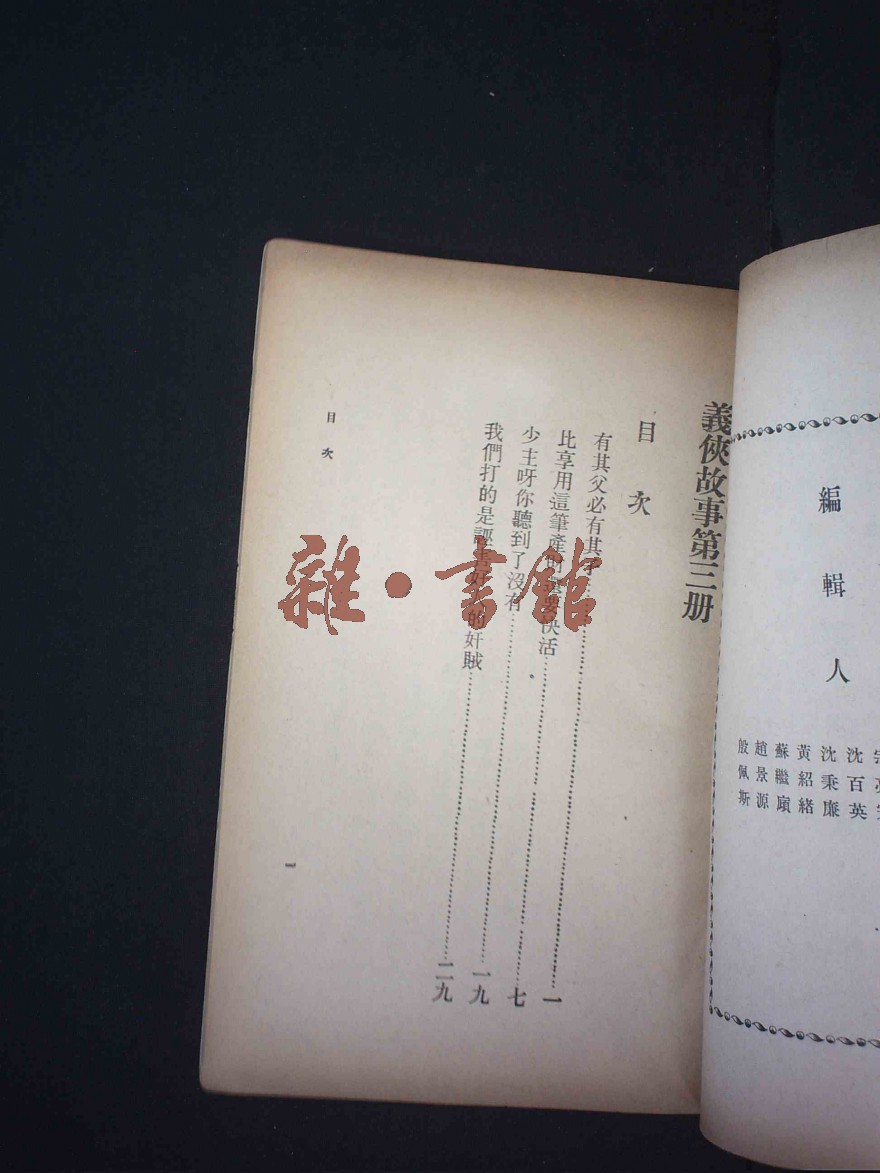 編輯人
沈百英
沈秉廉
黃紹緒
蘇繼廎
趙景源
殷佩斯
義俠故事第三册
目次
有其父必有其子……一
比享用這筆產財還要快活……七
少主呀你聽到了沒有……一九
我們打的是誣害好人的奸賊……二九
目次
一
雜·書館